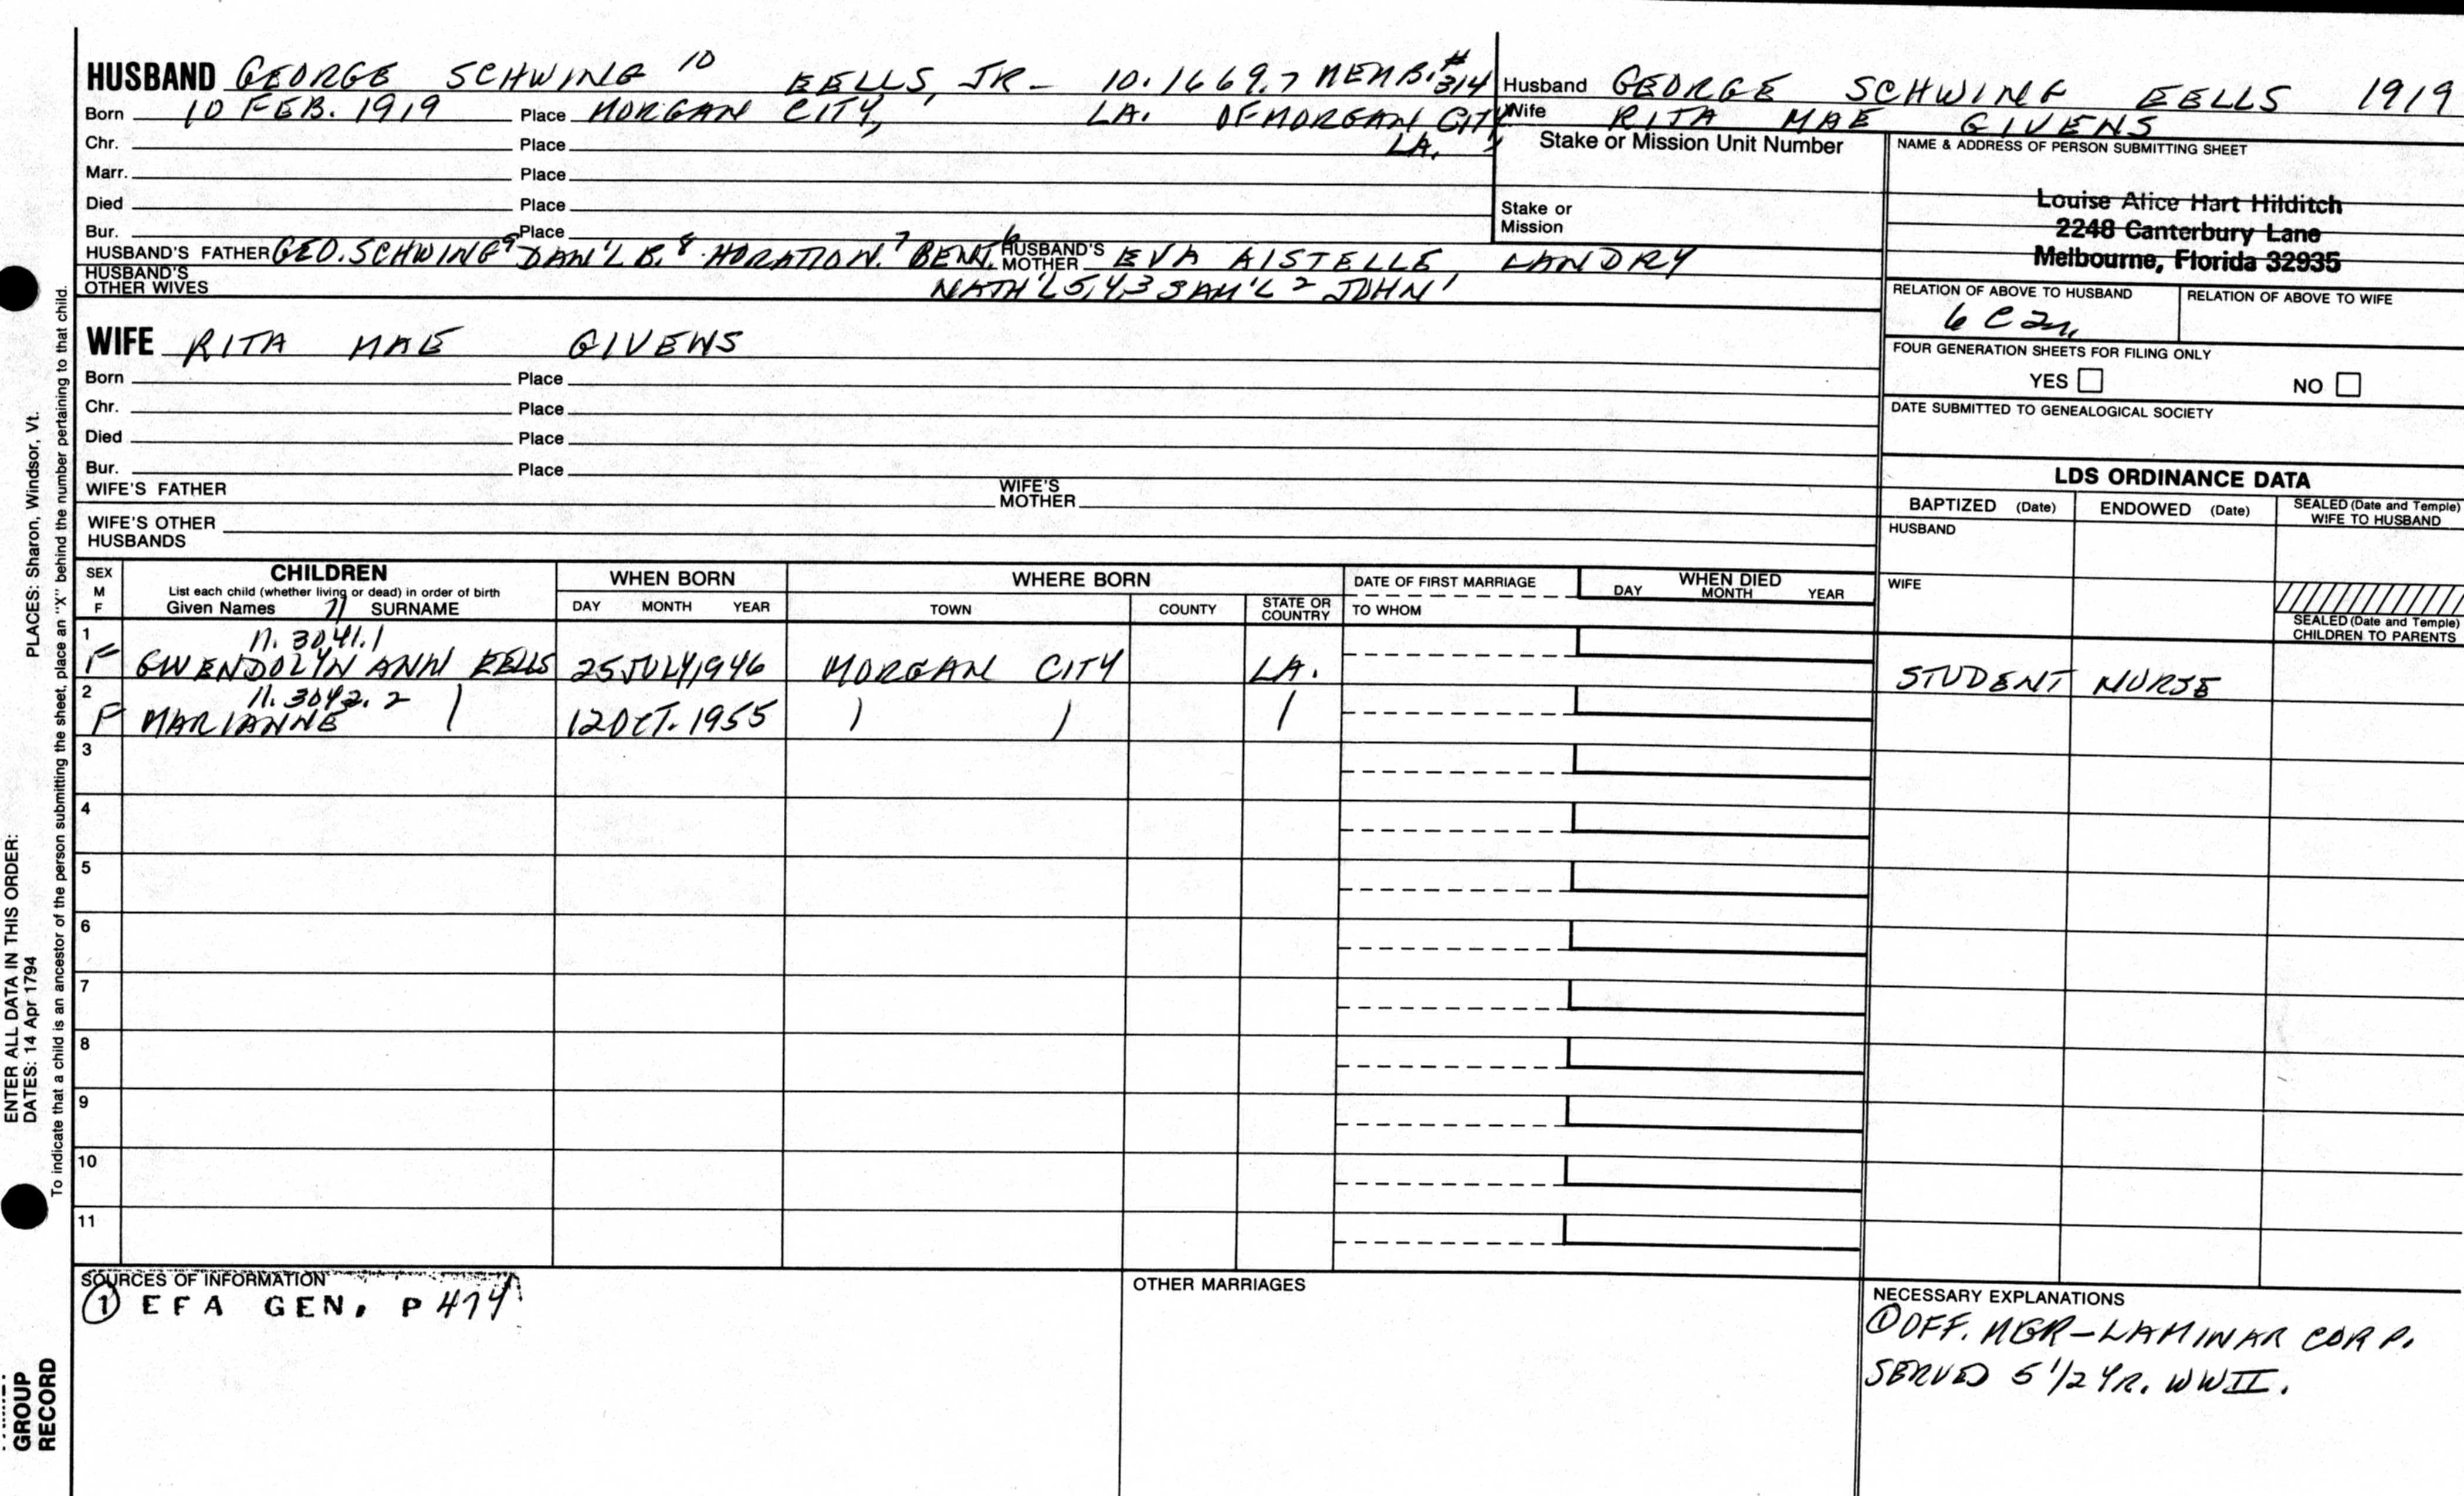 HUSBAND GEORGE SCHWING 10 EELLS, JR - 10.1669.7 MEMB. # 314
Born 10 FEB. 1919 Place MORGAN CITY, LA. OF MORGAN CITY, LA.
Chr. Place
Marr. Place
Died Place
Bur. Place
HUSBAND'S FATHER GEO. SCHWING 9 DAN'L B. 8 HORATIO N. 7 BENJ. 6 HUSBAND'S MOTHER EVA AISTELLE LANDRY
HUSBAND'S OTHER WIVES NATH'L 5,4,3 SAM'L 2 JOHN 1
Husband GEORGE SCHWING EELLS 1919
Wife RITA MAE GIVENS
Stake or Mission Unit Number
Stake or
Mission
NAME & ADDRESS OF PERSON SUBMITTING SHEET
Louise Alice Hart Hilditch
2248 Canterbury Lane
Melbourne, Florida 32935
RELATION OF ABOVE TO HUSBAND RELATION OF ABOVE TO WIFE
FOUR GENERATION SHEETS FOR FILING ONLY
YES NO
DATE SUBMITTED TO GENEALOGICAL SOCIETY
WIFE RITA MAE GIVENS
Born Place
Chr. Place
Died Place
Bur. Place
WIFE'S FATHER WIFE'S MOTHER
WIFE'S OTHER
HUSBANDS
LDS ORDINANCE DATA
BAPTIZED (Date) ENDOWED (Date) SEALED (Date and Temple) WIFE TO HUSBAND
HUSBAND
WIFE
SEALED (Date and Temple) CHILDREN TO PARENTS
SEX M F
CHILDREN
List each child (whether living or dead) in order of birth
Given Names 11 SURNAME
WHEN BORN
DAY MONTH YEAR
WHERE BORN
TOWN COUNTY STATE OR COUNTRY
DATE OF FIRST MARRIAGE
TO WHOM
WHEN DIED
DAY MONTH YEAR
1 11.3041.1
F GWENDOLYN ANN EELLS 25 JULY 1946 MORGAN CITY LA. STUDENT NURSE
2 11.3042.2
F MARIANNE | 12 OCT. 1955 | | |
3
4
5
6
7
8
9
10
11
SOURCES OF INFORMATION
① EFA GEN. P 474
OTHER MARRIAGES
NECESSARY EXPLANATIONS
① OFF. MGR - LAMINAR CORP.
SERVED 5 1/2 YR. WWII.
ENTER ALL DATA IN THIS ORDER:
DATES: 14 Apr 1794 PLACES: Sharon, Windsor, Vt.
To indicate that a child is an ancestor of the person submitting the sheet, place an "X" behind the number pertaining to that child.
GROUP
RECORD